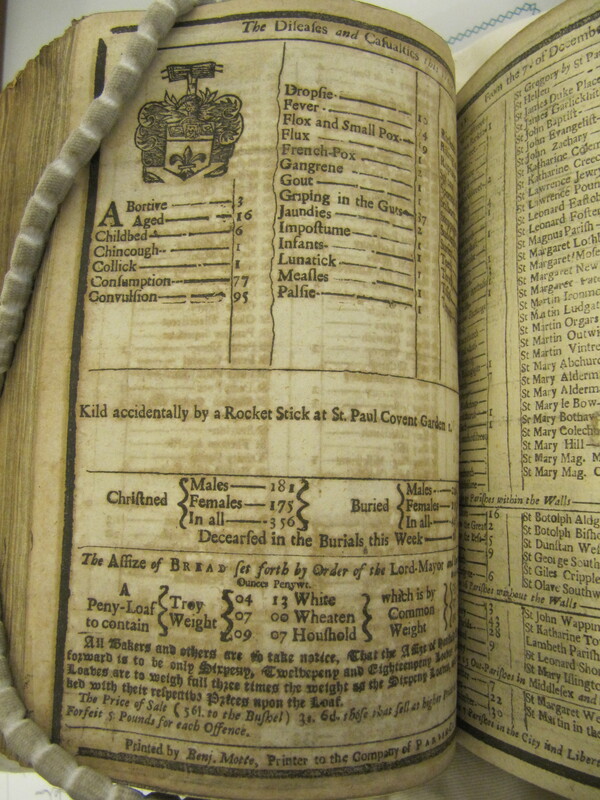 The Diseases and Casualties this
ABortive 3
Aged 16
Childbed 6
Chincough 1
Collick 1
Consumption 77
Convulsion 95
Dropsie
Fever
Flox and Small Pox 4
Flux 9
French-Pox 1
Gangrene 1
Gout 1
Griping in the Guts 37
Jaundies
Impostume 2
Infants 1
Lunatick 1
Measles 7
Palsie 1
Kild accidentally by a Rocket Stick at St. Paul Covent Garden 1.
Christned
Males 181
Females 175
In all 356
Buried
Males
Females
In all
Decearsed in the Burials this Week
The Assize of BREAD set forth by Order of the Lord-Mayor and
Ounces Penywt.
A Peny-Loaf to contain
Troy Weight
04 13 White
07 00 Wheaten
09 07 Houshold
which is by Common Weight
All Bakers and others are to take notice, That the Assize of
forward is to be only Sixpeny, Twelvepeny and Eighteenpeny
Loaves are to weigh full three times the weight as the Sixpeny
ked with their respective Prizes upon the Loaf.
The Price of Salt (56l. to the Bushel) 3s. 6d. those that sell at higher
Forfeit 5 Pounds for each Offence.
Printed by Benj. Motte, Printer to the Company of
From the 7. of Decembe
St Gregory by St Pa
St Hellen
St James Duke Place
St James Garlickhit
St John Baptist
St John Evangelist
St John Zachary
St Katharine Colem
St Katharine Creec
St Lawrence Jewry
St Lawrence Pount
St Leonard Eastob
St Leonard Foster
St Magnus Parish
St Margaret Lothb
St Margaret Moses
St Margaret New
St Margaret Patt
St Martin Ironmo
St Martin Ludgat
St Martin Orgars
St Martin Outwi
St Martin Vintre
St Mary Abchurc
St Mary Alderma
St Mary Alderm
St Mary le Bow
St Mary Bothaw
St Mary Colechu
St Mary Hill
St Mary Mag. M
St Mary Mag. C
Parishes within the Walls
St Botolph Aldg
St Botolph Bisho
St Dunstan West
St George South
St Giles Cripple
St Olave Southw
Parishes without the Walls
St John Wappin
St Katharine Tow
Lambeth Parish
St Leonard Shor
St Mary Islingto
Out-Parishes in Middlesex and
St Margaret We
St Martin in the
Parishes in the City and Libert